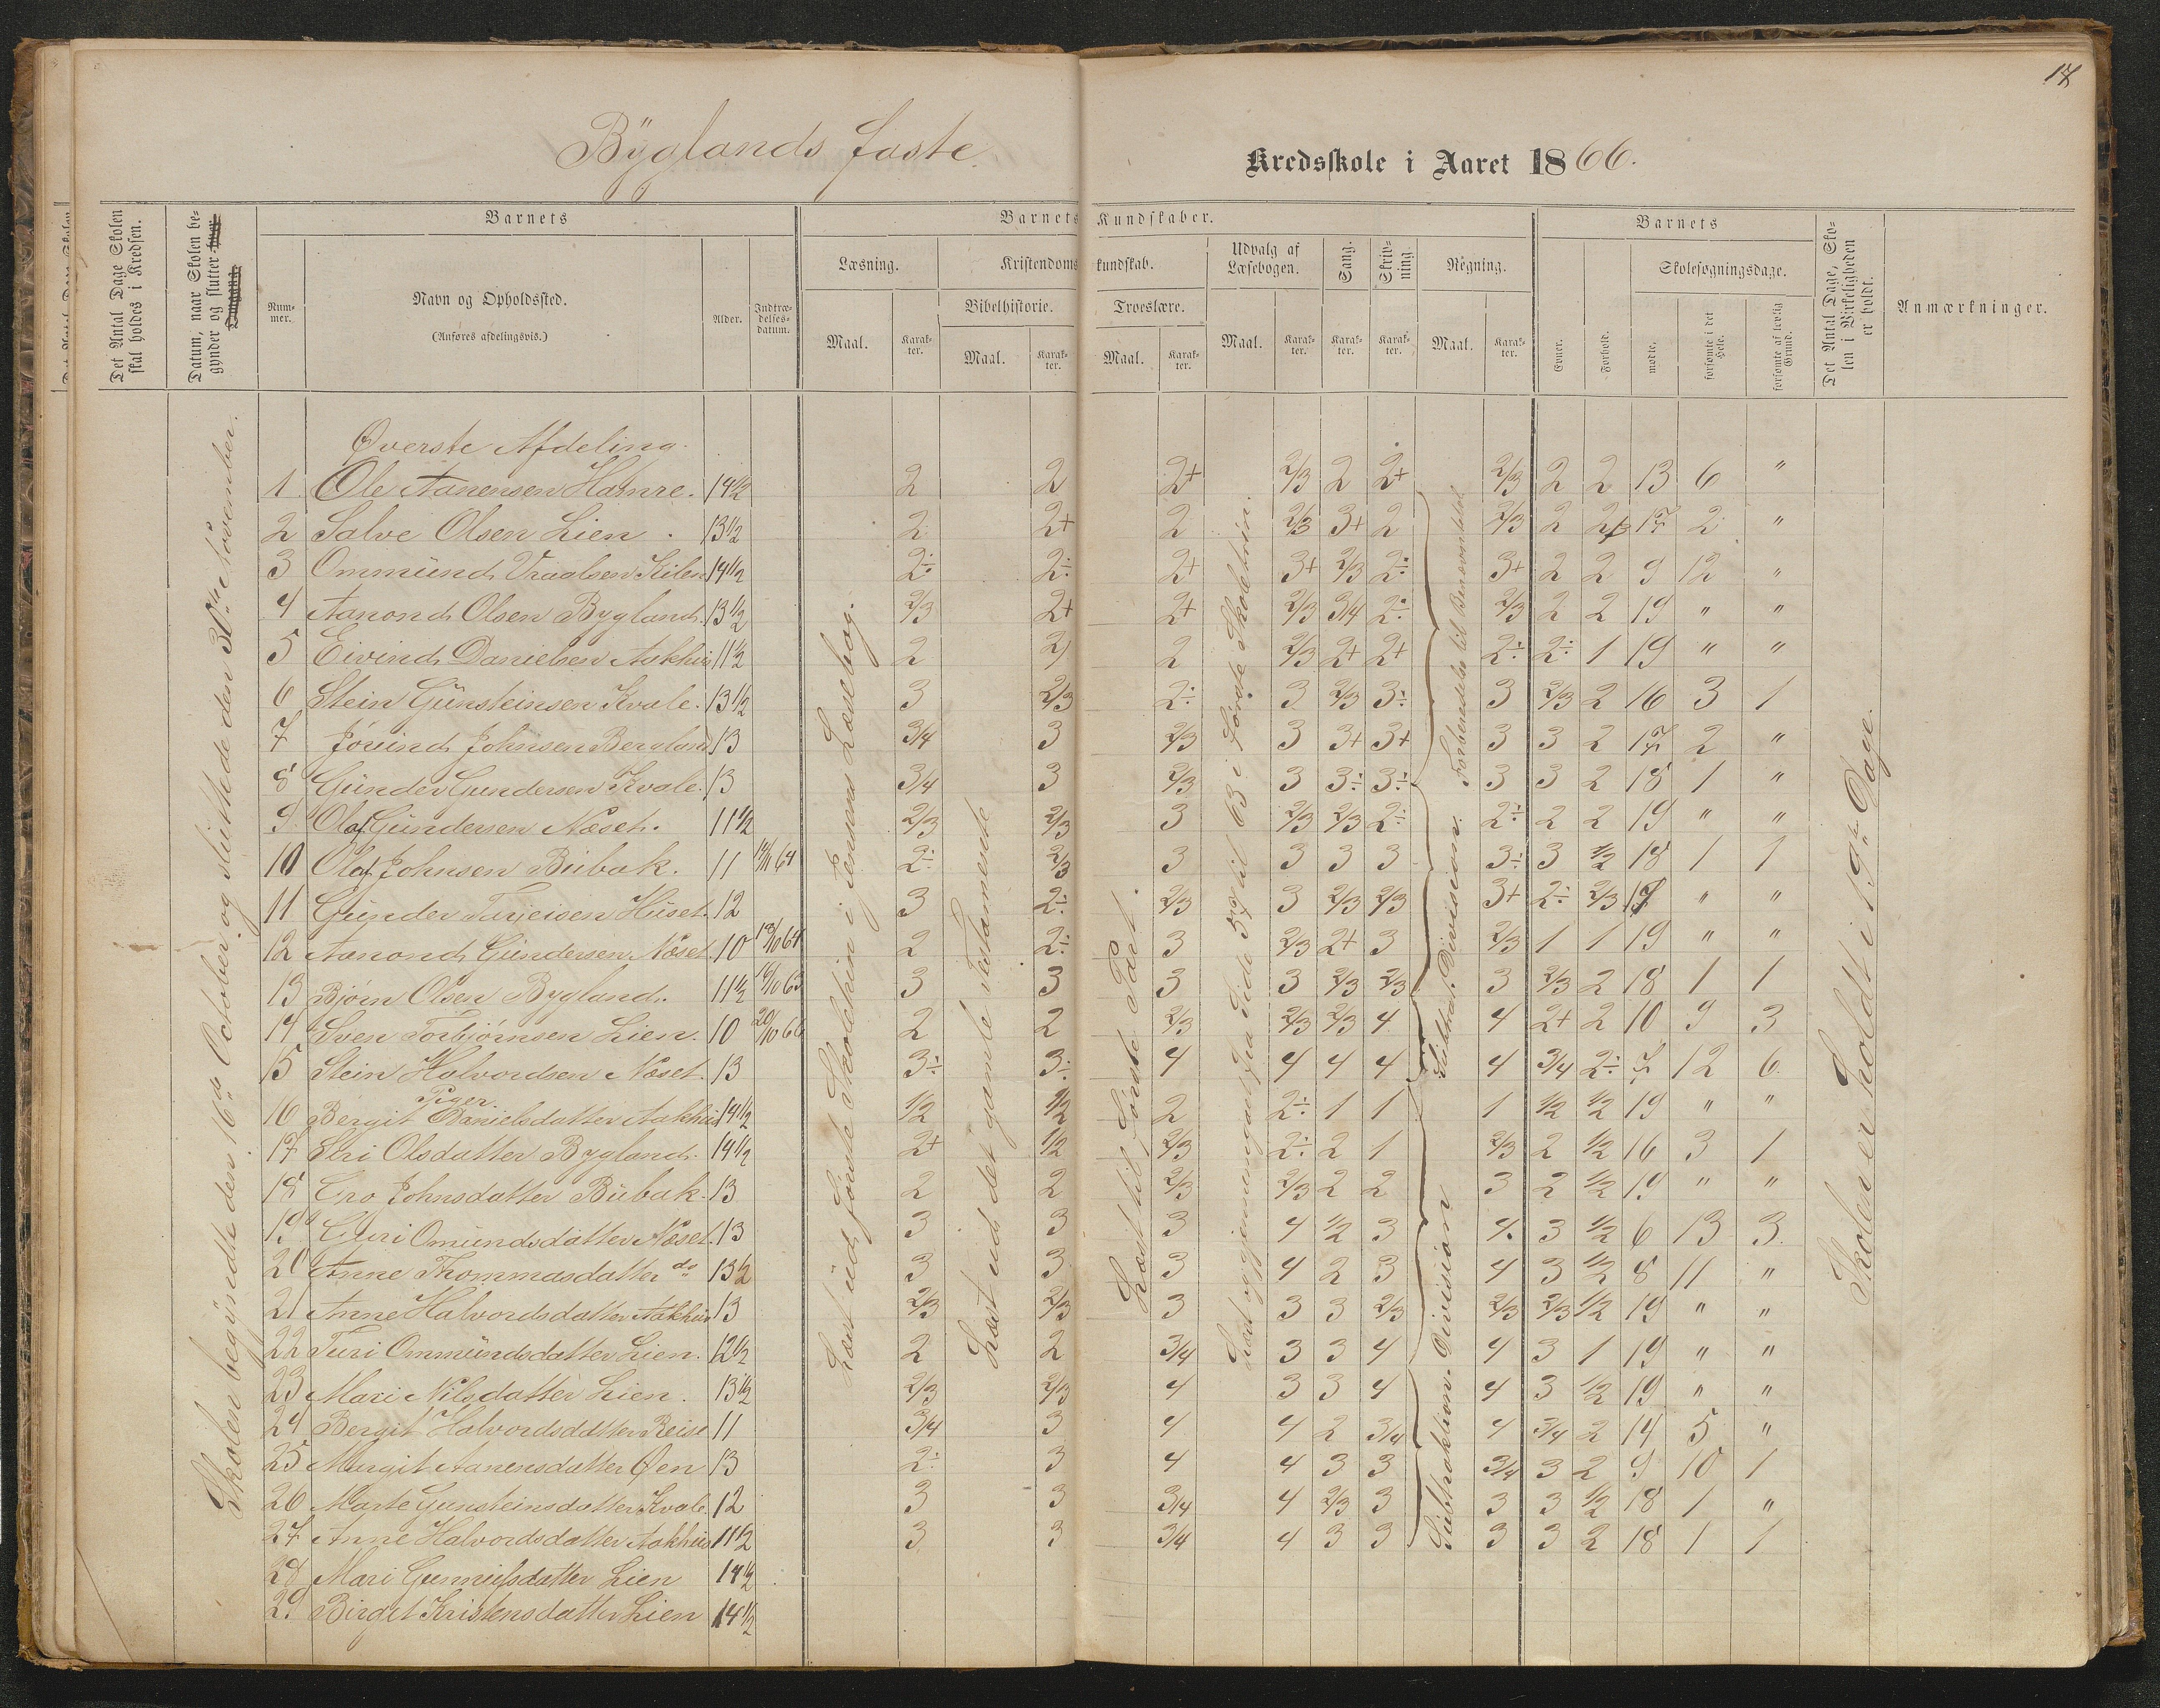 17
Byglands faste Kredsskole i Aaret 1866.
Det Antal Dage Skolen skal holdes i Kredsen.
Datum, naar Skolen begynder og slutter
Barnets
Nummer.
Navn og Opholdssted.
(Anføres afdelingsvis.)
Alder.
Indtrædelsesdatum.
Barnets Kundskaber.
Læsning.
Maal.
Karakter.
Kristendomskundskab.
Bibelhistorie.
Maal.
Karakter.
Troeslære.
Maal.
Karakter.
Udvalg af Læsebogen.
Maal.
Karakter.
Sang.
Karakter.
Skrivning.
Karakter.
Regning.
Maal.
Karakter.
Barnets
Evner.
Forhold.
Skolesøgningsdage.
mødte.
forsømte i det Hele.
forsømte af lovlig Grund.
Det Antal Dage, Skolen i Virkeligheden er holdt.
Anmærkninger.
Skolen begyndte den 16de October og sluttede den 30te November.
Læst ud første Skoletrin i Jensens Læsebog.
Læst ud det gamle Testamente
Læst til første Part.
Læst og gjennemgaaet fra Side 54 til 63 i første Skoletrin.
Forberedelse til Benævntetal.
Subtrak. Division.
Subtraktion. Division
Skolen er holdt i 19 Dage.
Øverste Afdeling.
1 Ole Aanensen Hamre. 14½ 2 2 2+ 2/3 2 2+ 2/3 2 2 13 6 "
2 Salve Olsen Lien. 13½ 2 2+ 2 2/3 3+ 2 2/3 2 2/3 17 2 "
3 Ommund Vraalsen Kilen 14½ 2÷ 2÷ 2+ 3+ 2/3 2÷ 3+ 2 2 9 12 "
4 Aanond Olsen Bygland. 13½ 2/3 2+ 2+ 2/3 3/4 2÷ 2/3 2 2 19 " "
5 Eivind Danielsen Aakhus 11½ 2 2 2 2/3 2+ 2+ 2÷ 2÷ 1 19 " "
6 Stein Gunsteinsen Kvale. 13½ 3 2/3 2÷ 3 2/3 3÷ 3 2/3 2 16 3 1
7 Jovind Johnsen Bergland 13 3/4 3 2/3 3 3+ 3+ 3 3 2 17 2 "
8 Gunder Gundersen Kvale. 13 3/4 3 2/3 3 3÷ 3÷ 3 3 2 18 1 "
9 Olaf Gundersen Næset. 11½ 2/3 2/3 3 2/3 2/3 2÷ 2÷ 2 2 19 " "
10 Olaf Johnsen Bubak. 11 64 2÷ 2/3 3 3 3 3 3÷ 3 ½ 18 1 1
11 Gunder Tarjeisen Huset. 12 3 2÷ 2/3 3 2/3 2/3 3+ 2÷ 2/3 19 " "
12 Aanond Gundersen Næset. 10 64 2 2÷ 3 2/3 2+ 3 2/3 1 1 19 " "
13 Bjørn Olsen Bygland. 11½ 63 3 3 3 3 2/3 2/3 3 2/3 2 18 1 1
14 Sven Torbjørnsen Lien. 10 20/10 66 2 2 2/3 2/3 2/3 4 4 2+ 2 10 9 3
15 Stein Halvordsen Næset. 13 3÷ 3÷ 4 4 4 4 4 3/4 2÷ 7 12 6
Piger
16 Bergit Danielsdatter Aakhus 14½ ½ ½ 2 2÷ 1 1 1 ½ ½ 19 " "
17 Siri Olsdatter Bygland. 14½ 2+ ½ 2/3 2÷ 2 1 2/3 2 ½ 16 3 1
18 Gro Johnsdatter Bubak. 13 2 2 2/3 2/3 2 2 3 2 ½ 19 " "
19 Guri Omundsdatter Næset. 13 3 3 3 4 ½ 3 4 3 ½ 6 13 3
20 Anne Thommasdatter do 13½ 3 3 3 4 2 3 4 3 ½ 8 11 "
21 Anne Halvordsdatter Aakhus 13 2/3 2/3 3 3 3 2/3 2/3 2/3 ½ 19 " "
22 Turi Ommundsdatter Lien. 12½ 2 2 3/4 3 3 4 4 3 1 19 " "
23 Mari Nilsdatter Lien. 13½ 2/3 2/3 4 3 3 4 4 3 ½ 19 " "
24 Bergit Halvordsdatter Reise 11 3/4 3 4 4 2 3/4 4 3/4 2 14 5 "
25 Margit Aanensdatter Øen 13 2÷ 3 4 4 3 3 3/4 3 2 9 10 1
26 Marte Gunsteinsdatter Kvale. 12 3 3 3/4 4 2/3 3 3 3 ½ 18 1 "
27 Anne Halvordsdatter Aakhus 11½ 3 3 3/4 4 3 3 3 3 2 18 1 1
28 Mari Gunnufsdatter Lien 14½
29 Birgit Kristensdatter Lien 14½